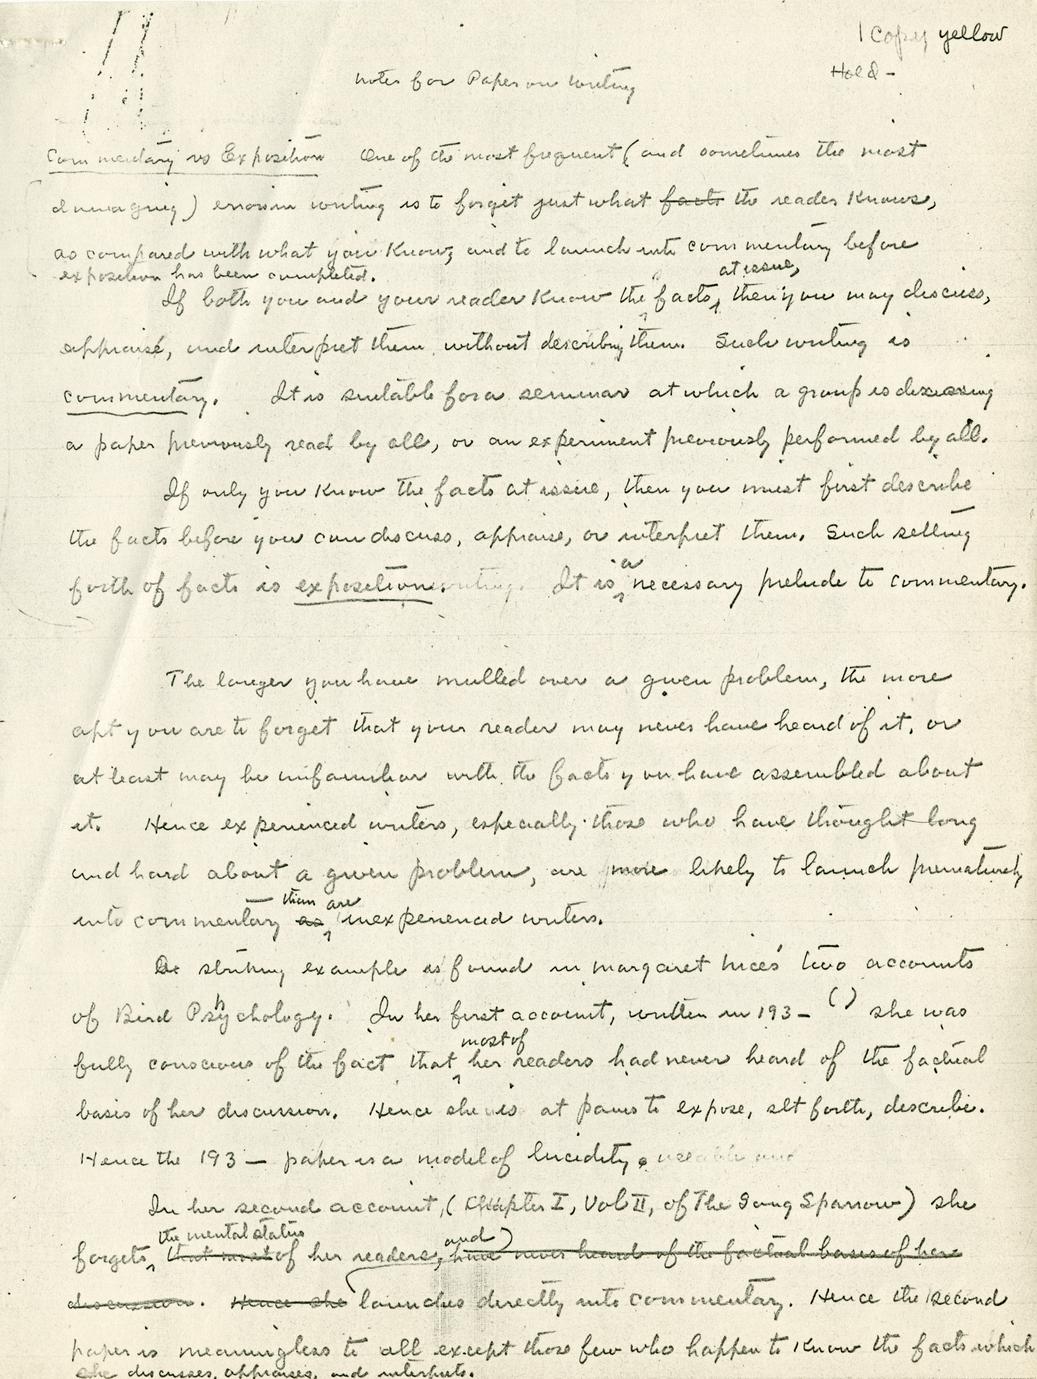 1 copy yellow
Hold -
Notes for Paper on Writing
Commentary vs Exposition One of the most frequent (and sometimes the most
damaging) errors in writing is to forget just what facts the reader knows,
as compared with what you know, and to launch into commentary before
exposition has been completed.
at issue,
If both you and your reader know the facts, then you may discuss,
appraise, and interpret them without describing them. Such writing is
commentary. It is suitable for a seminar at which a group is discussing
a paper previously read by all, or an experiment previously performed by all.
If only you know the facts at issue, then you must first describe
the facts before you can discuss, appraise, or interpret them. Such setting
a
forth of facts is exposition. It is necessary prelude to commentary.
The longer you have mulled over a given problem, the more
apt you are to forget that your reader may never have heard of it, or
at least may be unfamiliar with the facts you have assembled about
it. Hence experienced writers, especially those who have thought long
and hard about a given problem, are more likely to launch prematurely
than are
into commentary as inexperienced writers.
A striking example is found in Margaret Nice's two accounts
of Bird Psychology. In her first account, written in 193– ( ) she was
most of
fully conscious of the fact that her readers had never heard of the factual
basis of her discussion. Hence she is at pains to expose, set forth, describe.
Hence the 193 – paper is a model of lucidity.
In her second account, (Chapter I, Vol II, of The Song Sparrow) she
the mental status and
forgets that most of her readers, have never heard of the factual basis of her
discussion. Hence she launches directly into commentary. Hence the second
paper is meaningless to all except those few who happen to know the facts which
she discusses, appraises, and interprets.